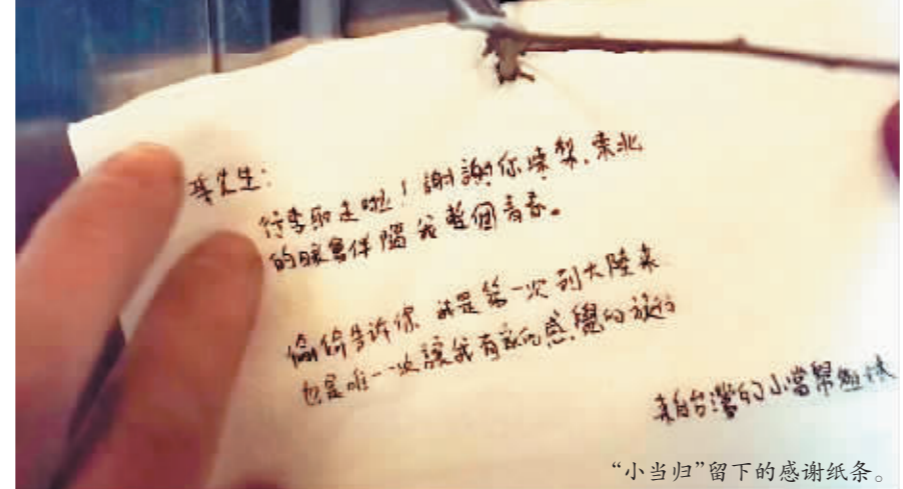 先生:
行李取走啦!謝謝你凍梨,東北
的暖會伴隨我整個青春。
偷偷告訴你 這是第一次到大陸來
也是唯一一次讓我有家的感覺的旅行
來自台灣的小當歸姐妹
“小当归”留下的感谢纸条。